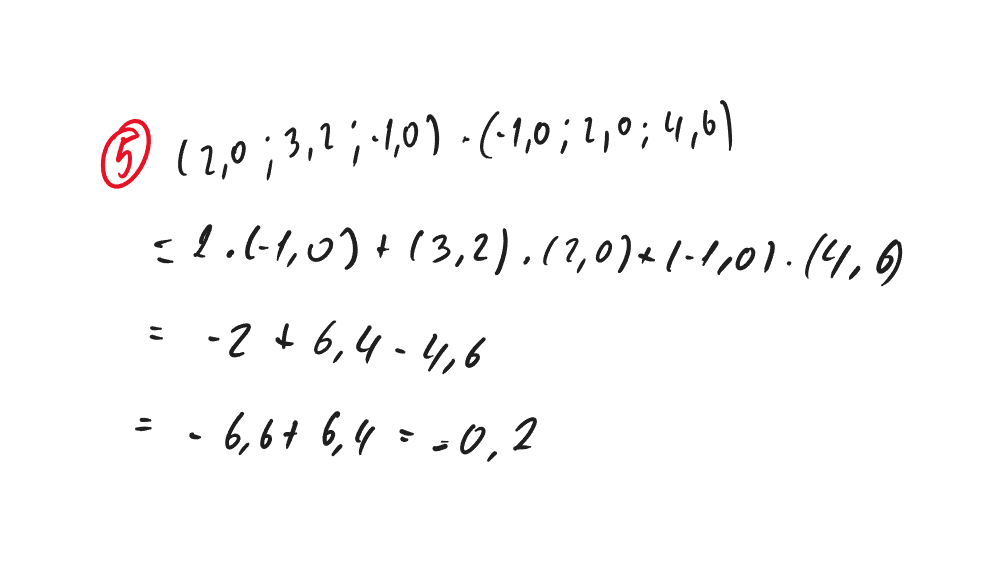 5 (2,0 ; 3,2 ; -1,0) · (-1,0 ; 2,0 ; 4,6)
= 2 · (-1,0) + (3,2) · (2,0) + (-1,0) · (4,6)
= -2 + 6,4 - 4,6
= - 6,6 + 6,4 = -0,2